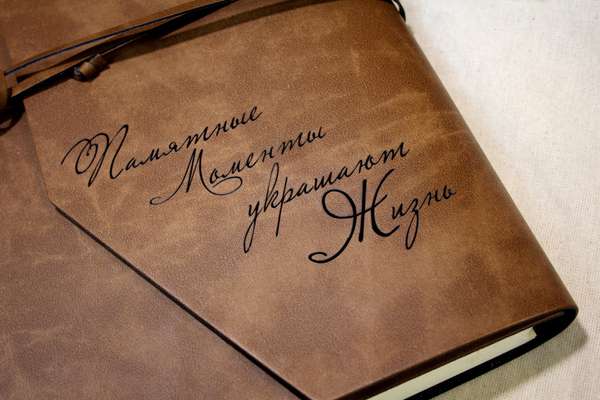 Памятные
Моменты
украшают
Жизнь